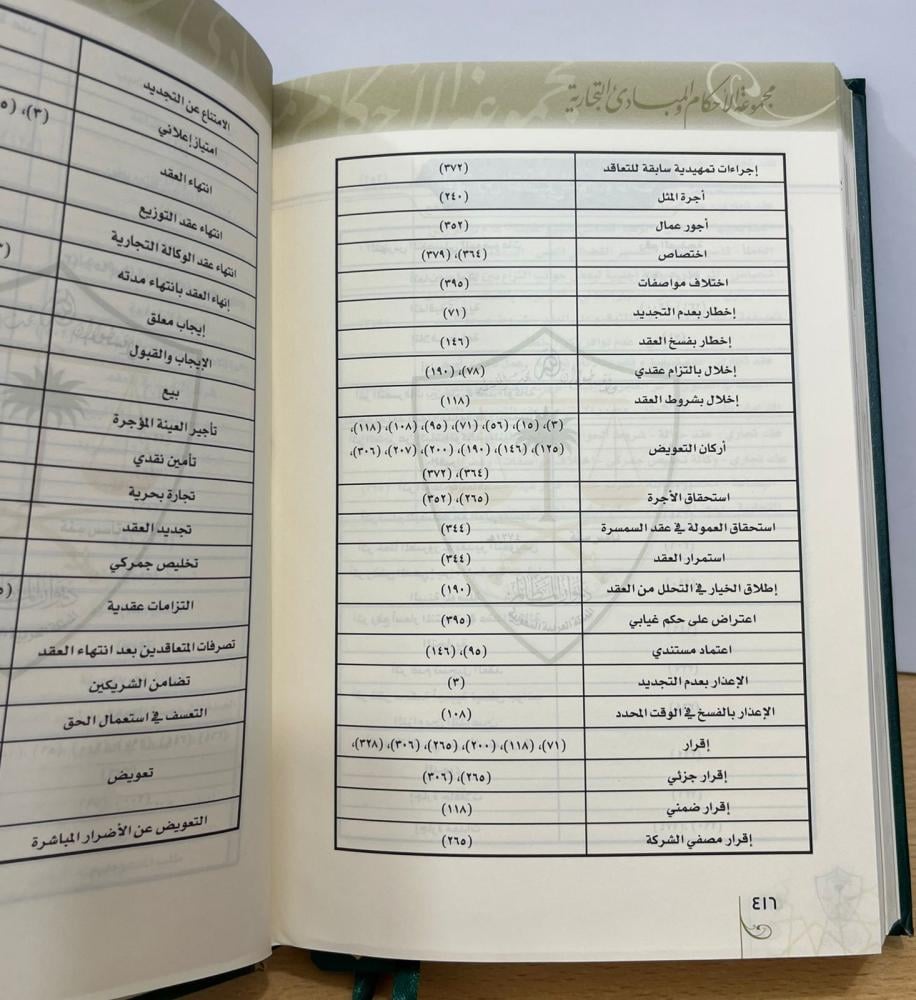 مجموعة الأحكام والمبادئ التجارية
إجراءات تمهيدية سابقة للتعاقد (٣٧٢)
أجرة المثل (٢٤٠)
أجور عمال (٣٥٢)
اختصاص (٣٦٤)، (٣٧٩)
اختلاف مواصفات (٣٩٥)
إخطار بعدم التجديد (٧١)
إخطار بفسخ العقد (١٤٦)
إخلال بالتزام عقدي (٧٨)، (١٩٠)
إخلال بشروط العقد (١١٨)
أركان التعويض (٣)، (١٥)، (٥٦)، (٧١)، (٩٥)، (١٠٨)، (١١٨)،
(١٢٥)، (١٤٦)، (١٩٠)، (٢٠٠)، (٢٠٧)، (٣٠٦)،
(٣٦٤)، (٣٧٢)
استحقاق الأجرة (٢٦٥)، (٣٥٢)
استحقاق العمولة في عقد السمسرة (٣٤٤)
استمرار العقد (٣٤٤)
إطلاق الخيار في التحلل من العقد (١٩٠)
اعتراض على حكم غيابي (٣٩٥)
اعتماد مستندي (٩٥)، (١٤٦)
الإعذار بعدم التجديد (٣)
الإعذار بالفسخ في الوقت المحدد (١٠٨)
إقرار (٧١)، (١١٨)، (٢٠٠)، (٢٦٥)، (٣٠٦)، (٣٢٨)،
إقرار جزئي (٢٦٥)، (٣٠٦)
إقرار ضمني (١١٨)
إقرار مصفي الشركة (٢٦٥)
٤١٦
الامتناع عن التجديد
امتياز إعلاني (٣)،
انتهاء العقد
انتهاء عقد التوزيع
انتهاء عقد الوكالة التجارية
إنهاء العقد بانتهاء مدته
إيجاب معلق
الإيجاب والقبول
بيع
تأجير العينة المؤجرة
تأمين نقدي
تجارة بحرية
تجديد العقد
تخليص جمركي
التزامات عقدية
تصرفات المتعاقدين بعد انتهاء العقد
تضامن الشريكين
التعسف في استعمال الحق
تعويض
التعويض عن الأضرار المباشرة